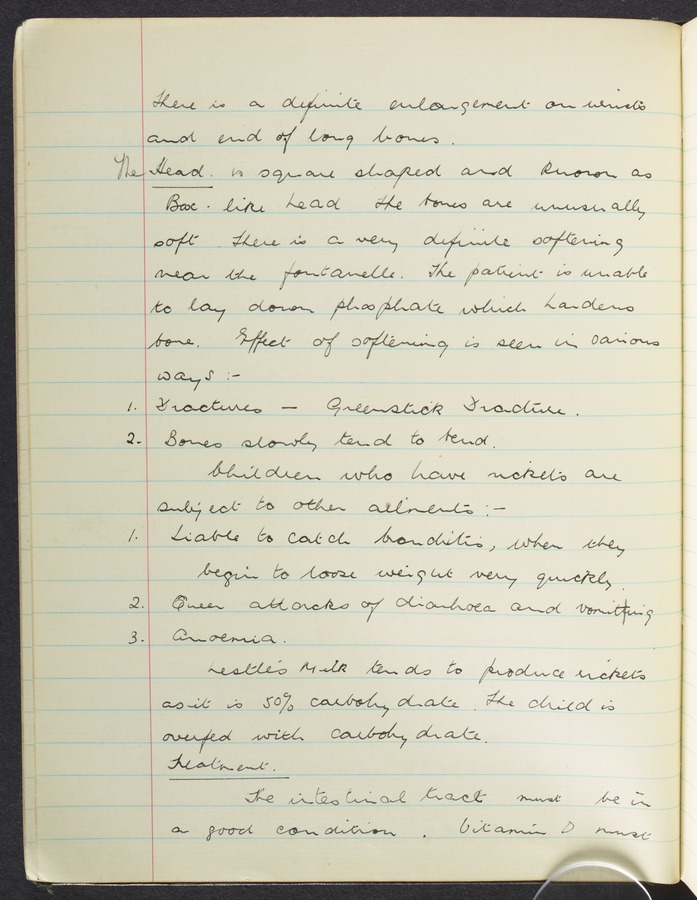 There is a definite enlargement on wrists
and end of long bones.
The Head. is square shaped and known as
Box-like head the bones are unusually
soft. There is a very definite softening
near the fontanelle. The patient is unable
to lay down phosphate which hardens
bone. Effect of softening is seen in various
ways :-
1. Fractures — Greenstick Fracture.
2. Bones slowly tend to bend.
Children who have rickets are
subject to other ailments :-
1. Liable to catch , when they
begin to loose weight very quickly.
2. Queer attacks of diarrhoea and vomitting
3. Anaemia.
Nestle's Milk tends to produce rickets
as it is 50% carbohydrate. The child is
overfed with carbohydrate.
Treatment.
The intestinal tract must be in
a good condition. Vitamin D must